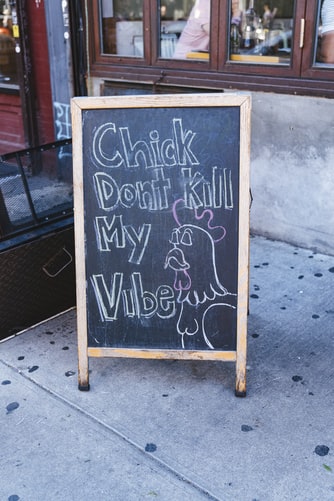 Chick
Dont Kill
My
Vibe